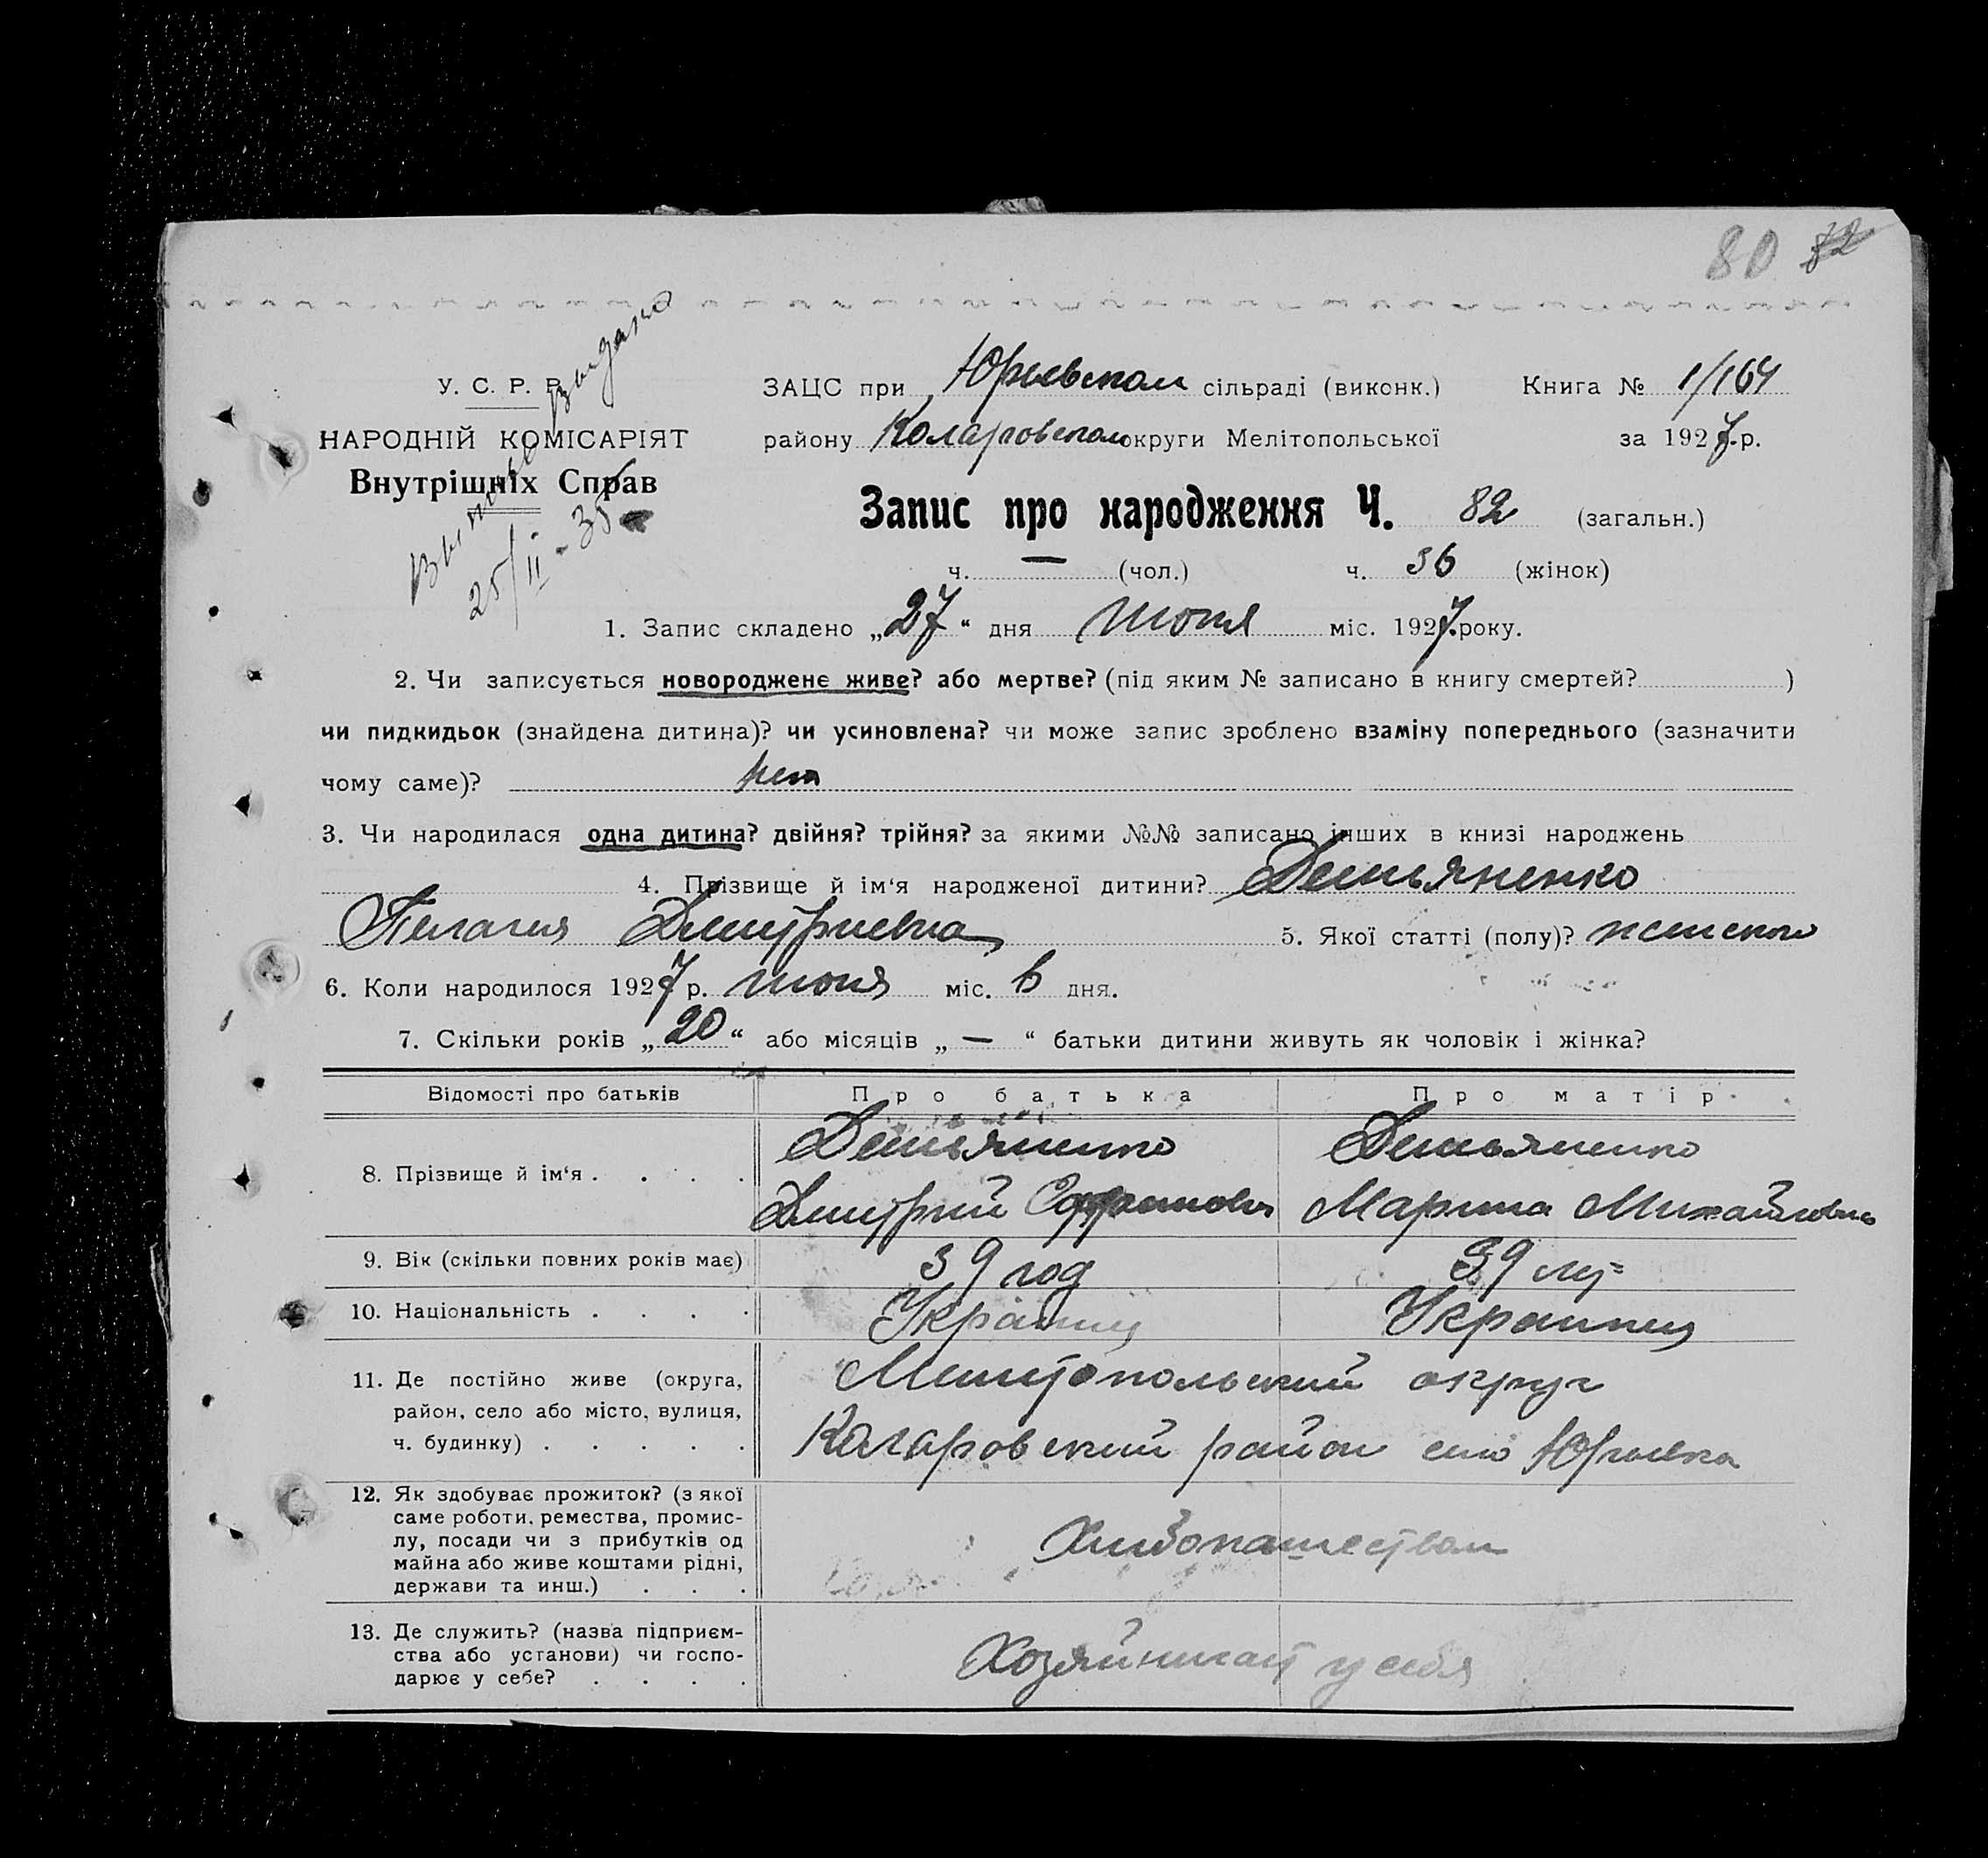 80 82
У. С. Р. Р.
НАРОДНІЙ КОМІСАРІЯТ
Внутрішніх Справ
Выпись выдано
25/II-35
ЗАЦС при Юрьевском сільраді (виконк.) Книга № 1/164
району Коларовском округи Мелітопольської за 1927 р.
Запис про народження Ч. 82 (загальн.)
ч. — (чол.) ч. 36 (жінок)
1. Запис складено „27“ дня июня міс. 1927 року.
2. Чи записується новороджене живе? або мертве? (під яким № записано в книгу смертей? )
чи пидкидьок (знайдена дитина)? чи усиновлена? чи може запис зроблено взаміну попереднього (зазначити
чому саме)? нет
3. Чи народилася одна дитина? двійня? трійня? за якими №№ записано інших в книзі народжень
4. Прізвище й ім‘я народженої дитини? Демьяненко
Пелагия Дмитриевна 5. Якої статті (полу)? женского
6. Коли народилося 1927 р. июня міс. 6 дня.
7. Скільки років „20“ або місяців „—“ батьки дитини живуть як чоловік і жінка?
Відомості про батьків Про батька Про матір
8. Прізвище й ім‘я . . . . Демьяненко Демьяненко
Дмитрий Марина Михайловна
9. Вік (скільки повних років має) 39 год 39 лет
10. Національність . . . . Украинец Украинец
11. Де постійно живе (округа, район, село або місто, вулиця, ч. будинку) . . . . . Мелитопольский округ
Коларовский район село Юрьевка
12. Як здобуває прожиток? (з якої саме роботи, ремества, промислу, посади чи з прибутків од майна або живе коштами рідні, держави та инш.) . . . Хлебопашеством
13. Де служить? (назва підприємства або установи) чи господарює у себе? . . . . Хозяйничает у себя